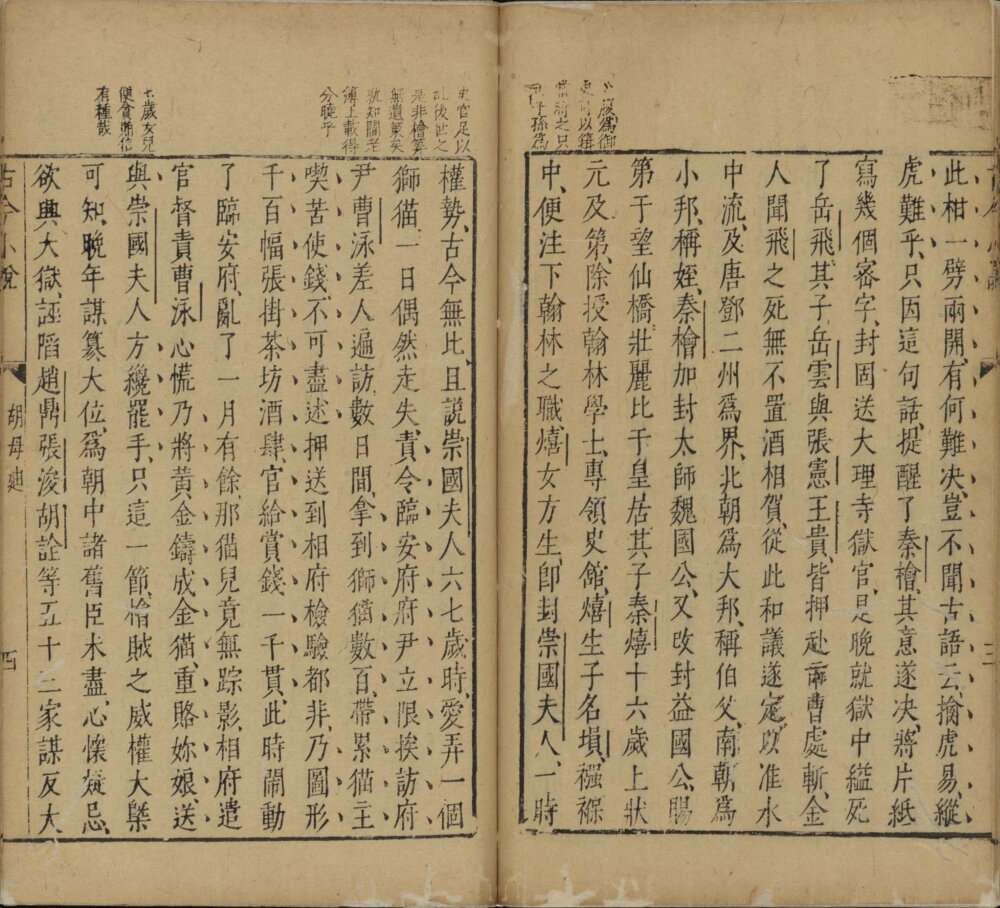 此柑一劈兩開、有何難決、豈不聞古語云、擒虎易、縱
虎難乎、只因這句話、提醒了秦檜、其意遂决、將片紙
寫幾個密字、封固送大理寺獄官、是晚就獄中縊死
了岳飛、其子岳雲與張憲、王貴、皆押赴市曹處斬、金
人聞飛之死、無不置酒相賀、從此和議遂定、以淮水
中流、及唐鄧二州爲界、北朝爲大邦、稱伯父、南朝爲
小邦、稱姪、秦檜加封太師魏國公、又改封益國公、賜
第于望仙橋、壯麗比于皇居、其子秦熺、十六歲上狀
元及第、除授翰林學士、專領史館、熺生子名塤、襁褓
中、便注下翰林之職、熺女方生、即封崇國夫人、一時
爲御
可以
孫爲
權勢、古今無比、且說崇國夫人六七歲時、愛弄一個
獅猫、一日偶然走失、責令臨安府府尹、立限挨訪、府
尹曹泳差人遍訪、數日間、拿到獅猫數百、帶累猫主
喫苦使錢、不可盡述、押送到相府檢驗、都非、乃圖形
千百幅、張掛茶坊酒肆、官給賞錢一千貫、此時閙動
了臨安府、亂了一月有餘、那猫兒竟無踪影、相府遣
官督責、曹泳心慌、乃將黃金鑄成金猫、重賂妳娘、送
與崇國夫人、方纔罷手、只這一節、檜賊之威權大槩
可知、晚年謀篡大位、爲朝中諸舊臣未盡、心懷疑忌、
欲興大獄、誣陷趙鼎、張浚、胡詮等五十三家、謀反大
史官足以
亂後世之
是非檜筭
無遺策矣
孰知閻老
簿上載得
分曉乎
七歲女兒
便貪賂信
有種哉
古今小說
胡母迪
四
三